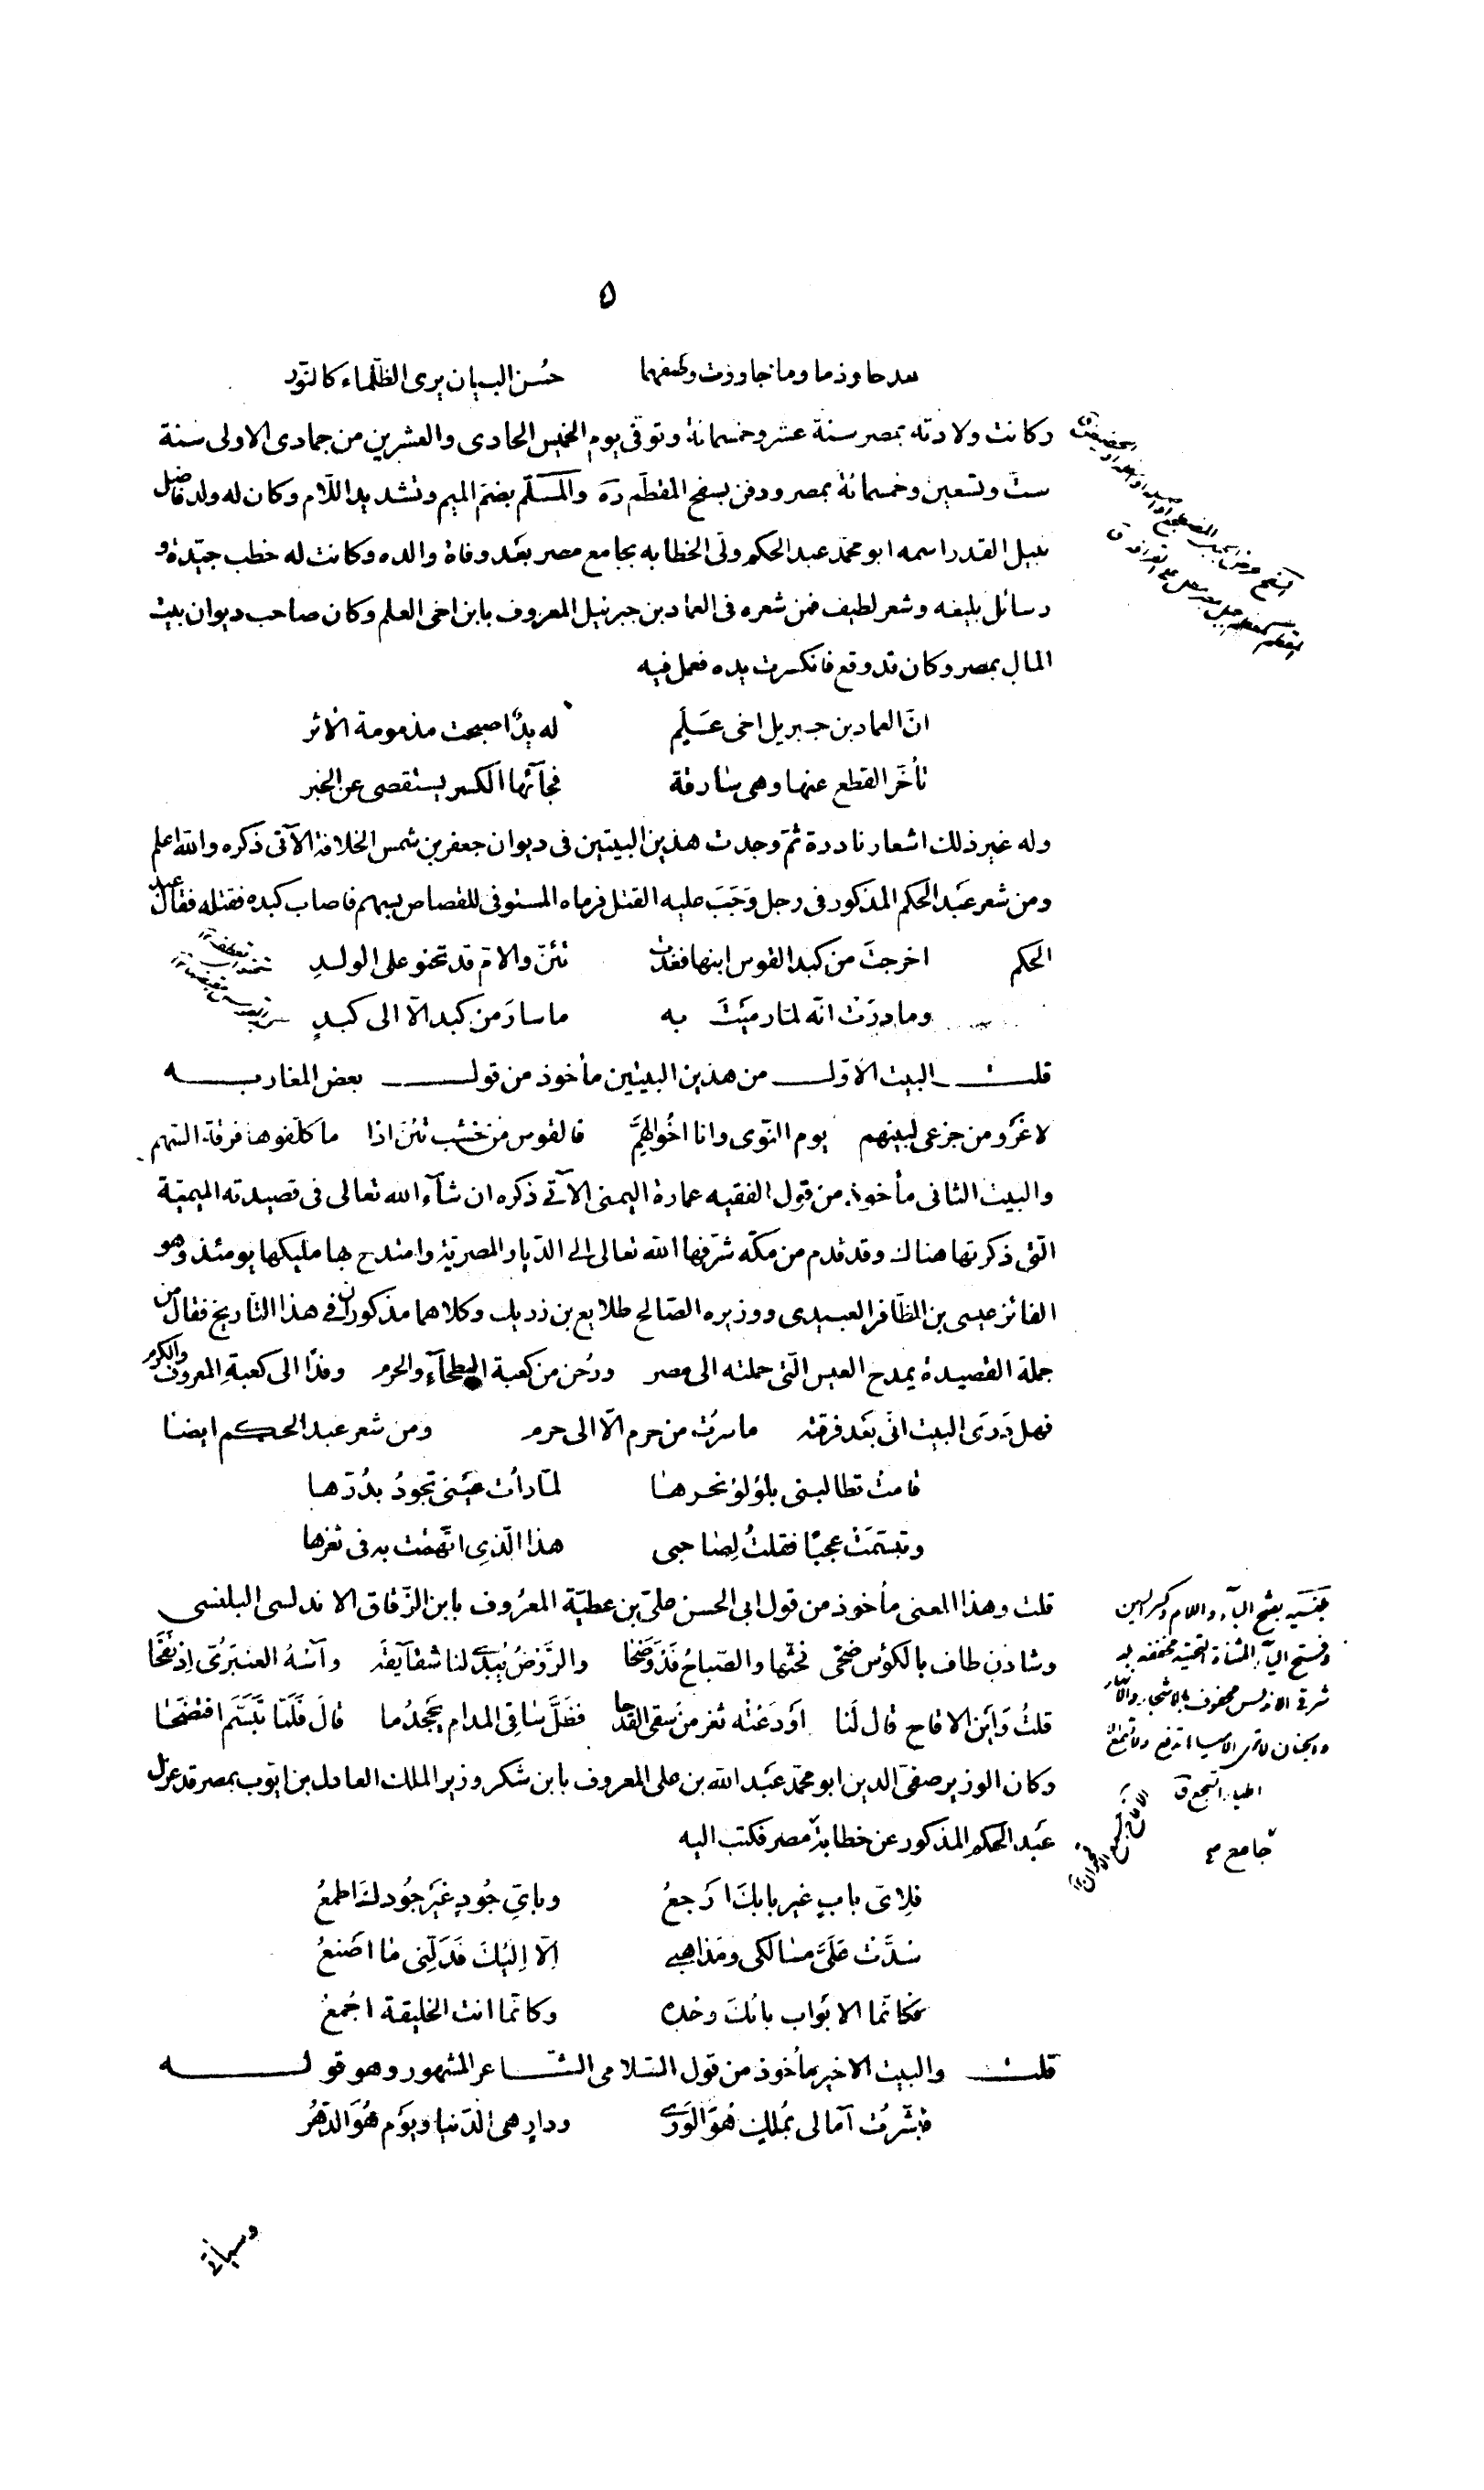 ٥
مدحا وذما وما جاوزت وصفهما حُسن البيان يرى الظّلماء كالنّور
وكانت ولادته بمصر سنة عشر وخمسمائة وتوفّى يوم الخميس الحادى والعشرين من جمادى الاولى سنة
ستّ وتسعين وخمسمائة بمصر ودفن بسفح المقطّم ره والمسلّم بضمّ الميم وتشديد اللّام وكان له ولد فاضل
نبيل القدر اسمه ابو محمّد عبد الحكم ولّى الخطابه بجامع مصر بعَد وفاة والده وكانت له خطب جيّدة و
رسائل بليغه وشعر لطيف فمن شعره فى العماد بن جبرئيل المعروف بابن اخى العلم وكان صاحب ديوان بيت
المال بمصر وكان قد وقع فانكسرت يده فعمل فيه
انّ العماد بن جبريل اخى عَلَمٍ له يدٌ اصبحت مذمومة الاثر
تأخّر القطع عنها وهى سارقة فجآئها الكسر يستقصى عن الخبر
وله غير ذلك اشعار نادرة ثمّ وجدت هذين البيتين فى ديوان جعفر بن شمس الخلافة الآتى ذكره والله اعلم
ومن شعر عَبد الحكم المذكور فى رجل وَجَبَ عليه القتل فرماه المستوفى للقصاص بسهم فاصاب كبده فقتله فقال عبد
الحكم اخرجتَ من كبد القوس ابنها فغدت تئنّ والامّ قد تحنو على الولدِ
وما درَت انّه لمّا رميَتَ به ما سارَ من كبد الّا الى كبدٍ
قلت البيت الاوّل من هذين البيتين مأخوذ من قول بعض المغاربه
لا غَرْو من جزعى لبينهم يوم النّوى وانا اخُو الهمِّ فالقوس من خشب تئنّ اذا ما كلّفوها فرقة السّهم
والبيت الثانى مأخوذ من قول الفقيه عمارة اليمنى الآتى ذكره ان شآء الله تعالى فى قصيدته الميميّة
الّتى ذكرتها هناك وقد قدم من مكّه شرّفها الله تعالى الى الدّيار المصريّة وامتدح بها مليكها يومئذ وهو
الفائز عيسى بن الظّافر العبيدى ووزيره الصّالح طلايع بن رزيك وكلاهما مذكوران فى هذا التّاريخ فقال من
جملة القصيدة يمدح العيس الّتى حملته الى مصر ورُحن من كعبة البطحآءِ والحرم وفدًا الى كعبةِ المعروف والكرم
فهل دَرَى البيت انّى بعَد فرقته ما سرْت من حرم الّا الى حرم ومن شعر عبد الحكم ايضا
قامت تطالبنى بلؤلؤ نحرها لمّا رأت عَينى تجودُ بدُرّها
وتبسّمَتْ عجبًا فقلتُ لِصاحبى هذا الّذى اتّهمَت به فى ثغرها
قلت وهذا المعنى مأخوذ من قول ابى الحسن علىّ بن عطيّة المعرُوف بابن الزّقاق الاندلسى البلنسى
وشادنٍ طاف بالكوئس ضحًى فحثّها والصّباحُ قَدْ وَضَحَا والرَّوْضُ يُبدِى لنا شقآيقَه وآسُهُ العنبَرُىّ اِذ نَفَحَا
قلتُ وَاَين الاقاح قال لَنا اَودَعْتُه ثغر مَن سقى القدحا فظَلَّ ساقِى المدامِ يَجحَدُ ما قالَ فَلَمّا تَبَسَّم افتضحَا
وكان الوزير صفىّ الدين ابو محمّد عَبد الله بن على المعروف بابن شكر وزير الملك العادل بن ايّوب بمصر قد عزل
عَبد الحكم المذكور عن خطابة مصر فكتب اليه
فلِاَىّ بابٍ غير بابكَ اَرجعُ وباىِّ جُودٍ غيَر جُودكَ اطمعُ
سُدَّتْ عَلَىَّ مسالكى ومَذاهبى اِلّا اِليْكَ فَدَلّنِى ما اصَنعُ
فكانّما الابَواب بابُكَ وحْده وكانّما انت الخليقة اجْمعُ
قلت والبيت الاخير مأخوذ من قول السّلامى الشّاعر المشهور وهو قوله
فبشّرْت آمالى بمُلكٍ هُوَ الوَرَى ودارٍ هى الدّنيا ويَوم هُوَ الدّهْرُ
بلنسيه بفتح الباء واللام وكسر السين
وفتح الياء المثناة التحتية مخففه بلد
شرقى الاندلس محفوف بالاشجار
جامع
وسيأتى